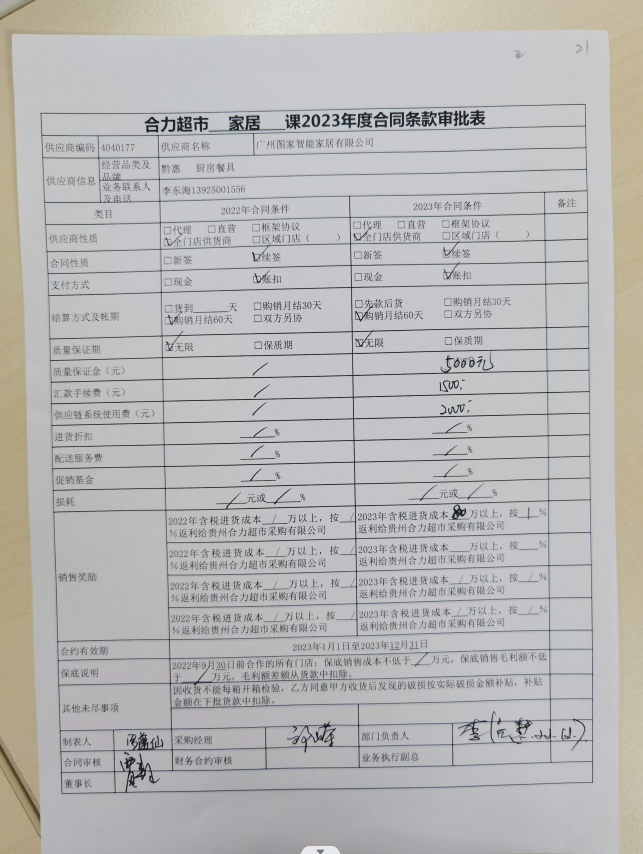 21
合力超市 家居 课2023年度合同条款审批表
供应商编码 4040177 供应商名称 广州图家智能家居有限公司
供应商信息 经营品类及品牌 黔惠 厨房餐具
业务联系人及电话 李东海13925001556
类目 2022年合同条件 2023年合同条件 备注
供应商性质 □代理 □直营 □框架协议 □代理 □直营 □框架协议
☑全门店供货商 □区域门店（ ） ☑全门店供货商 □区域门店（ ）
合同性质 □新签 ☑续签 □新签 ☑续签
支付方式 □现金 ☑账扣 □现金 ☑账扣
结算方式及帐期 □货到____天 □购销月结30天 □先款后货 □购销月结30天
☑购销月结60天 □双方另协 ☑购销月结60天 □双方另协
质量保证期 ☑无限 □保质期 ☑无限 □保质期
质量保证金（元） / 5000元
汇款手续费（元） / 1500
供应链系统使用费（元） / 2000
进货折扣 / % / %
配送服务费 / % / %
促销基金 / % / %
损耗 / 元或 / % / 元或 / %
销售奖励
2022年含税进货成本 / 万以上，按 / 2023年含税进货成本 80 万以上，按 1 %
%返利给贵州合力超市采购有限公司 返利给贵州合力超市采购有限公司
2022年含税进货成本 / 万以上，按 / 2023年含税进货成本____万以上，按___%
%返利给贵州合力超市采购有限公司 返利给贵州合力超市采购有限公司
2022年含税进货成本 / 万以上，按 / 2023年含税进货成本 / 万以上，按 / %
%返利给贵州合力超市采购有限公司 返利给贵州合力超市采购有限公司
2022年含税进货成本 / 万以上，按 / 2023年含税进货成本 / 万以上，按 / %
%返利给贵州合力超市采购有限公司 返利给贵州合力超市采购有限公司
合约有效期 2023年1月1日至2023年12月31日
保底说明 2022年9月30日前合作的所有门店：保底销售成本不低于 / 万元，保底销售毛利额不低
于 / 万元，毛利额差额从货款中扣除。
其他未尽事项 因收货不能每箱开箱检验，乙方同意甲方收货后发现的破损按实际破损金额补贴，补贴
金额在下批货款中扣除。
制表人 采购经理 部门负责人
合同审核 财务合约审核 业务执行副总
董事长